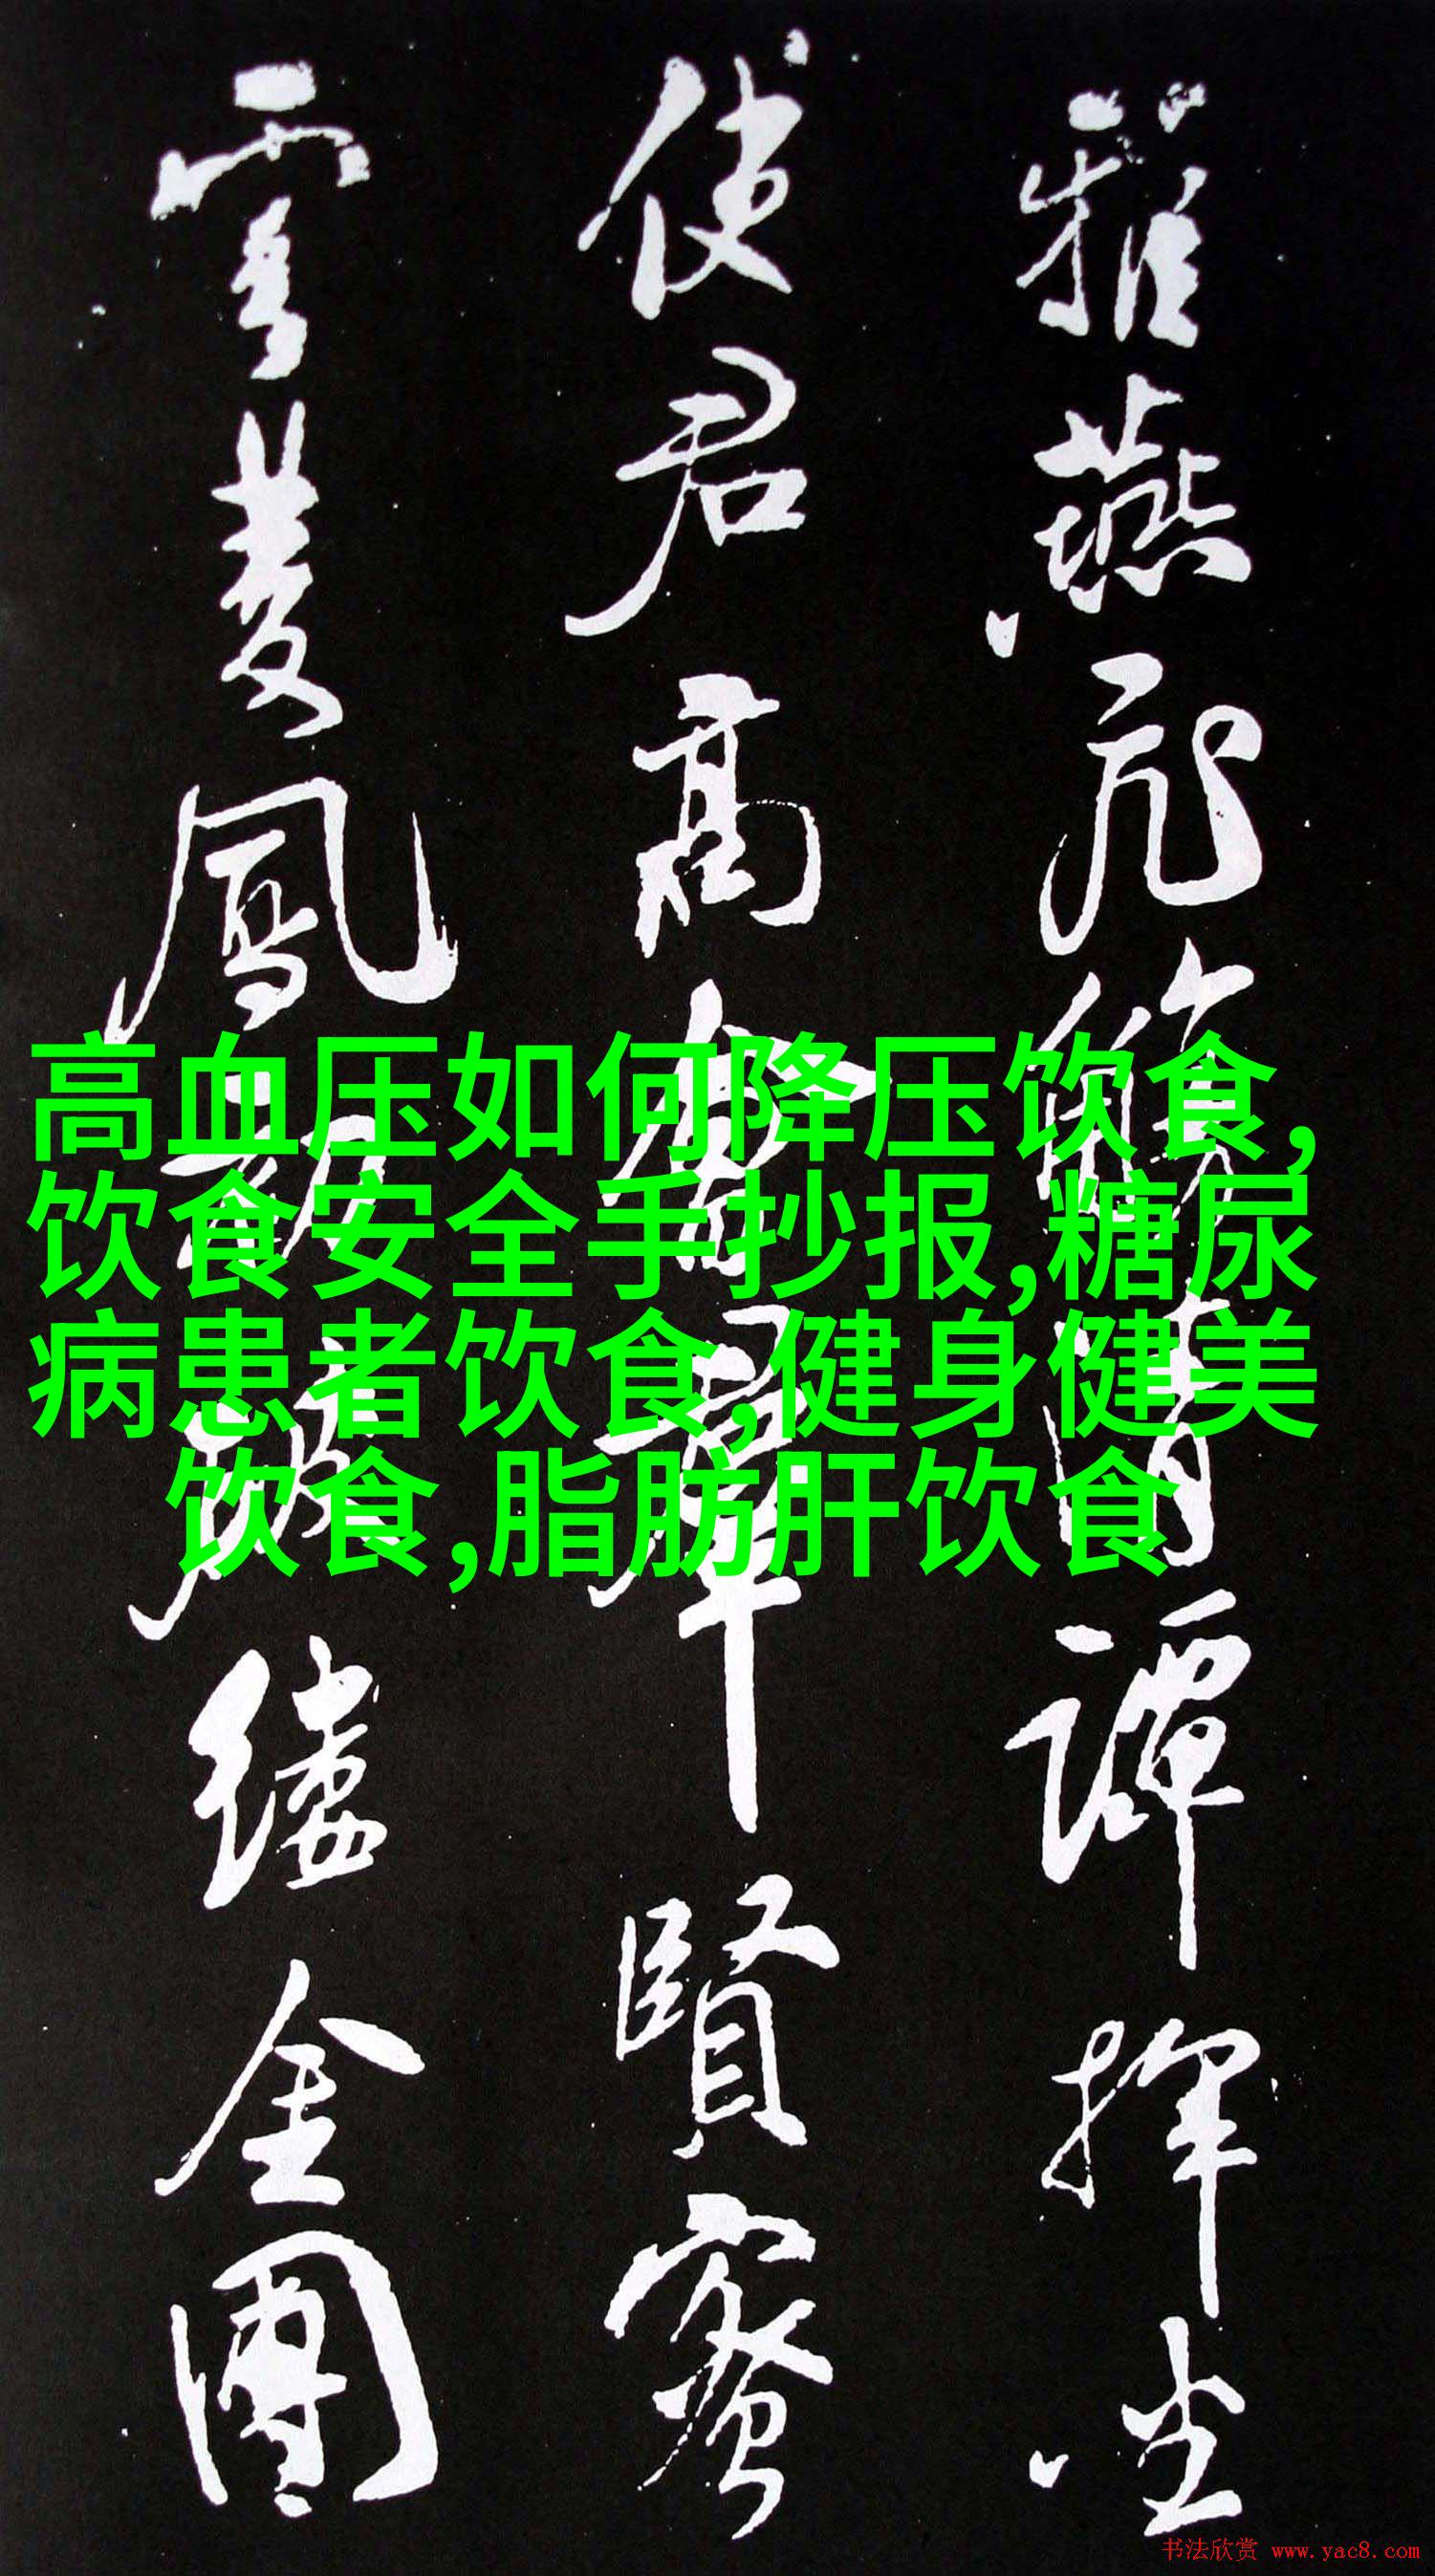 雅燕飛觴清譚揮坐
使君高會羣賢密
雲蒙鳳初破縷金團
高血压如何降压饮食,
饮食安全手抄报,糖尿
病患者饮食,健身健美
饮食,脂肪肝饮食
书法欣赏 www.yac8.com